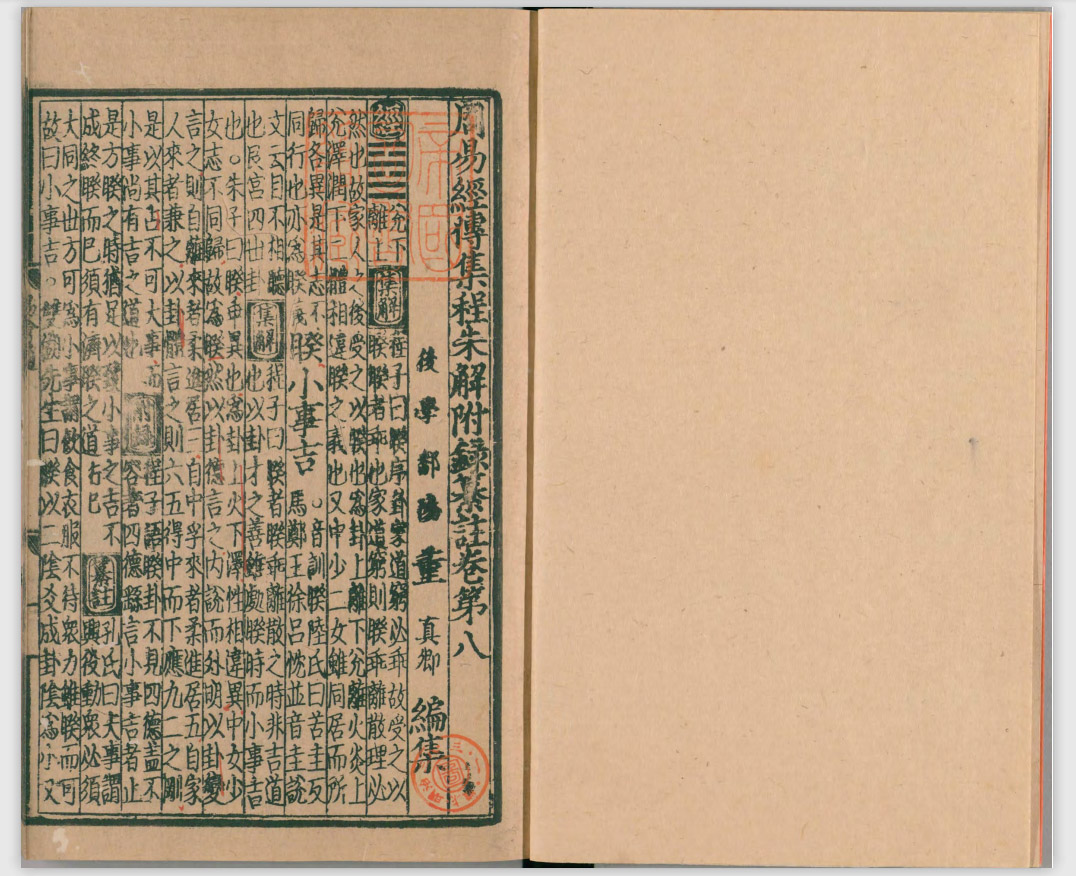 周易經傳集程朱解附録纂註卷第八
後學鄱陽董真卿編集
經 ䷥ 兌下
離上 集解 程子曰睽序卦家道窮必乖故受之以
睽睽者乖也家道窮則睽乖離散理必
然也故家人之後受之以睽也為卦上離下兌離火炎上
兌澤潤下二體相違睽之義也又中少二女雖同居而所
歸各異是其志不
同行也亦為睽義 睽小事吉 ○音訓睽陸氏曰苦圭反
馬鄭王徐呂忱並音圭說
文云目不相聽
也艮宮四世卦 集解 程子曰睽者睽乖離散之時非吉道
也以卦才之善雖處睽時而小事吉
也○朱子曰睽乖異也為卦上火下澤性相違異中女少
女志不同歸故為睽然以卦德言之內說而外明以卦變
言之則自離來者柔進居三自中孚來者柔進居五自家
人來者兼之以卦體言之則六五得中而下應九二之剛
是以其占不可大事而
小事尚有吉之道也 附録 程子語睽卦不見四德蓋不
容著四德繇言小事吉者止
是方睽之時猶足以致小事之吉不
成終睽而已須有濟睽之道右已 纂註 孔氏曰大事謂
興役動眾必須
大同之世方可為小事謂飲食衣服不待眾力雖睽而可
故曰小事吉○雙湖先生曰睽以二陰爻成卦陰為小又